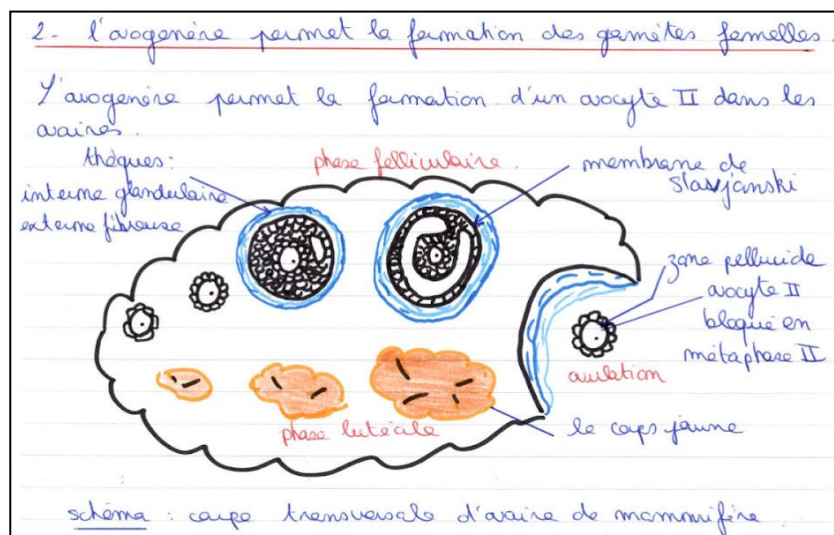 2- l'ovogenèse permet la formation des gamètes femelles.
L'ovogenèse permet la formation d'un ovocyte II dans les
ovaires.
thèques:
interne glandulaire
externe fibreuse
phase folliculaire.
membrane de
Slavjanski
zone pellucide
ovocyte II
bloqué en
métaphase II
ovulation
phase lutéale
le corps jaune
schéma : coupe transversale d'ovaire de mammifère